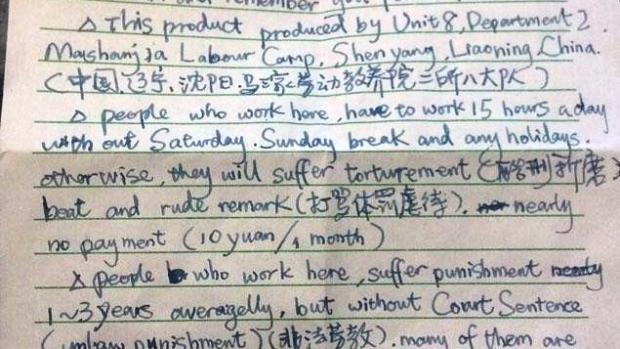 remember you
△ This product produced by Unit 8, Department 2.
Mashanjia Labour Camp, Shen yang, Liaoning, China.
(中国,辽宁,沈阳,马三家劳动教养院二所八大队)
△ people who work here, have to work 15 hours a day
with out Saturday. Sunday break and any holidays.
otherwise, they will suffer torturement (折磨)
beat and rude remark (打骂体罚虐待). nearly
no payment (10 yuan/1 month)
△ people who work here, suffer punishment
1~3 years averagelly, but without Court Sentence
(unlaw punishment) (非法劳教). many of them are